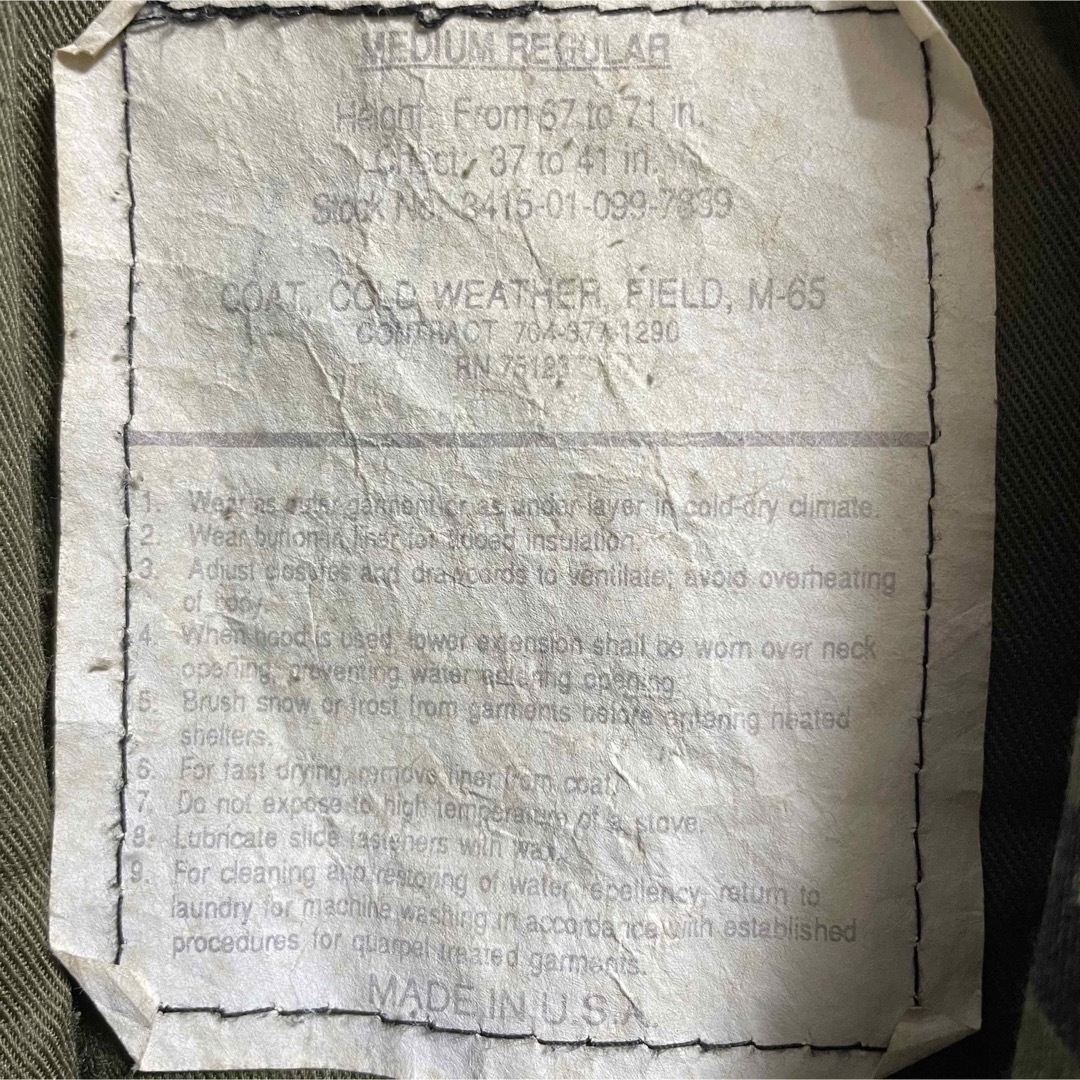 MEDIUM REGULAR
Height: From 67 to 71 in.
Chest: 37 to 41 in.
Stock No. 8415-01-099-7839
COAT, COLD WEATHER, FIELD, M-65
CONTRACT
RN 75123
1. Wear as outer garment or as under-layer in cold-dry climate.
2. Wear button-in liner for added insulation.
3. Adjust closures and drawcords to ventilate; avoid overheating
of body.
4. When hood is used, lower extension shall be worn over neck
opening, preventing water entering opening.
5. Brush snow or frost from garments before entering heated
shelters.
6. For fast drying, remove liner from coat.
7. Do not expose to high temperature of a stove.
8. Lubricate slide fasteners with wax.
9. For cleaning and restoring of water repellency, return to
laundry for machine washing in accordance with established
procedures for quarpel treated garments.
MADE IN U.S.A.